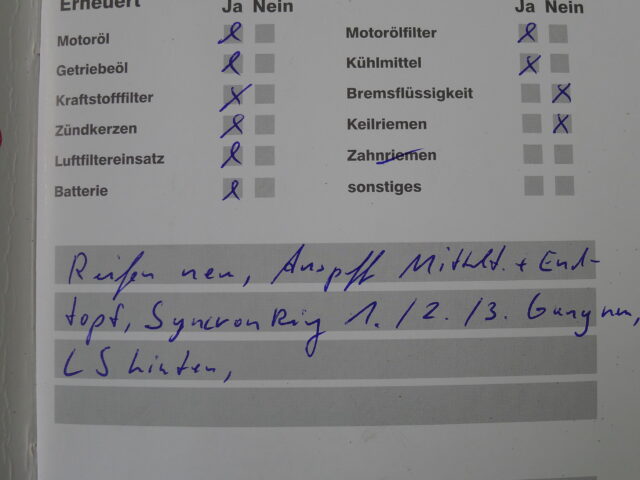 Erneuert Ja Nein Ja Nein
Motoröl Motorölfilter
Getriebeöl Kühlmittel
Kraftstofffilter Bremsflüssigkeit
Zündkerzen Keilriemen
Luftfiltereinsatz Zahnriemen
Batterie sonstiges
Reifen neu, Auspuff Mittelt. + End-
topf, Syncron Ring 1./2./3. Gang neu,
LS hinten,